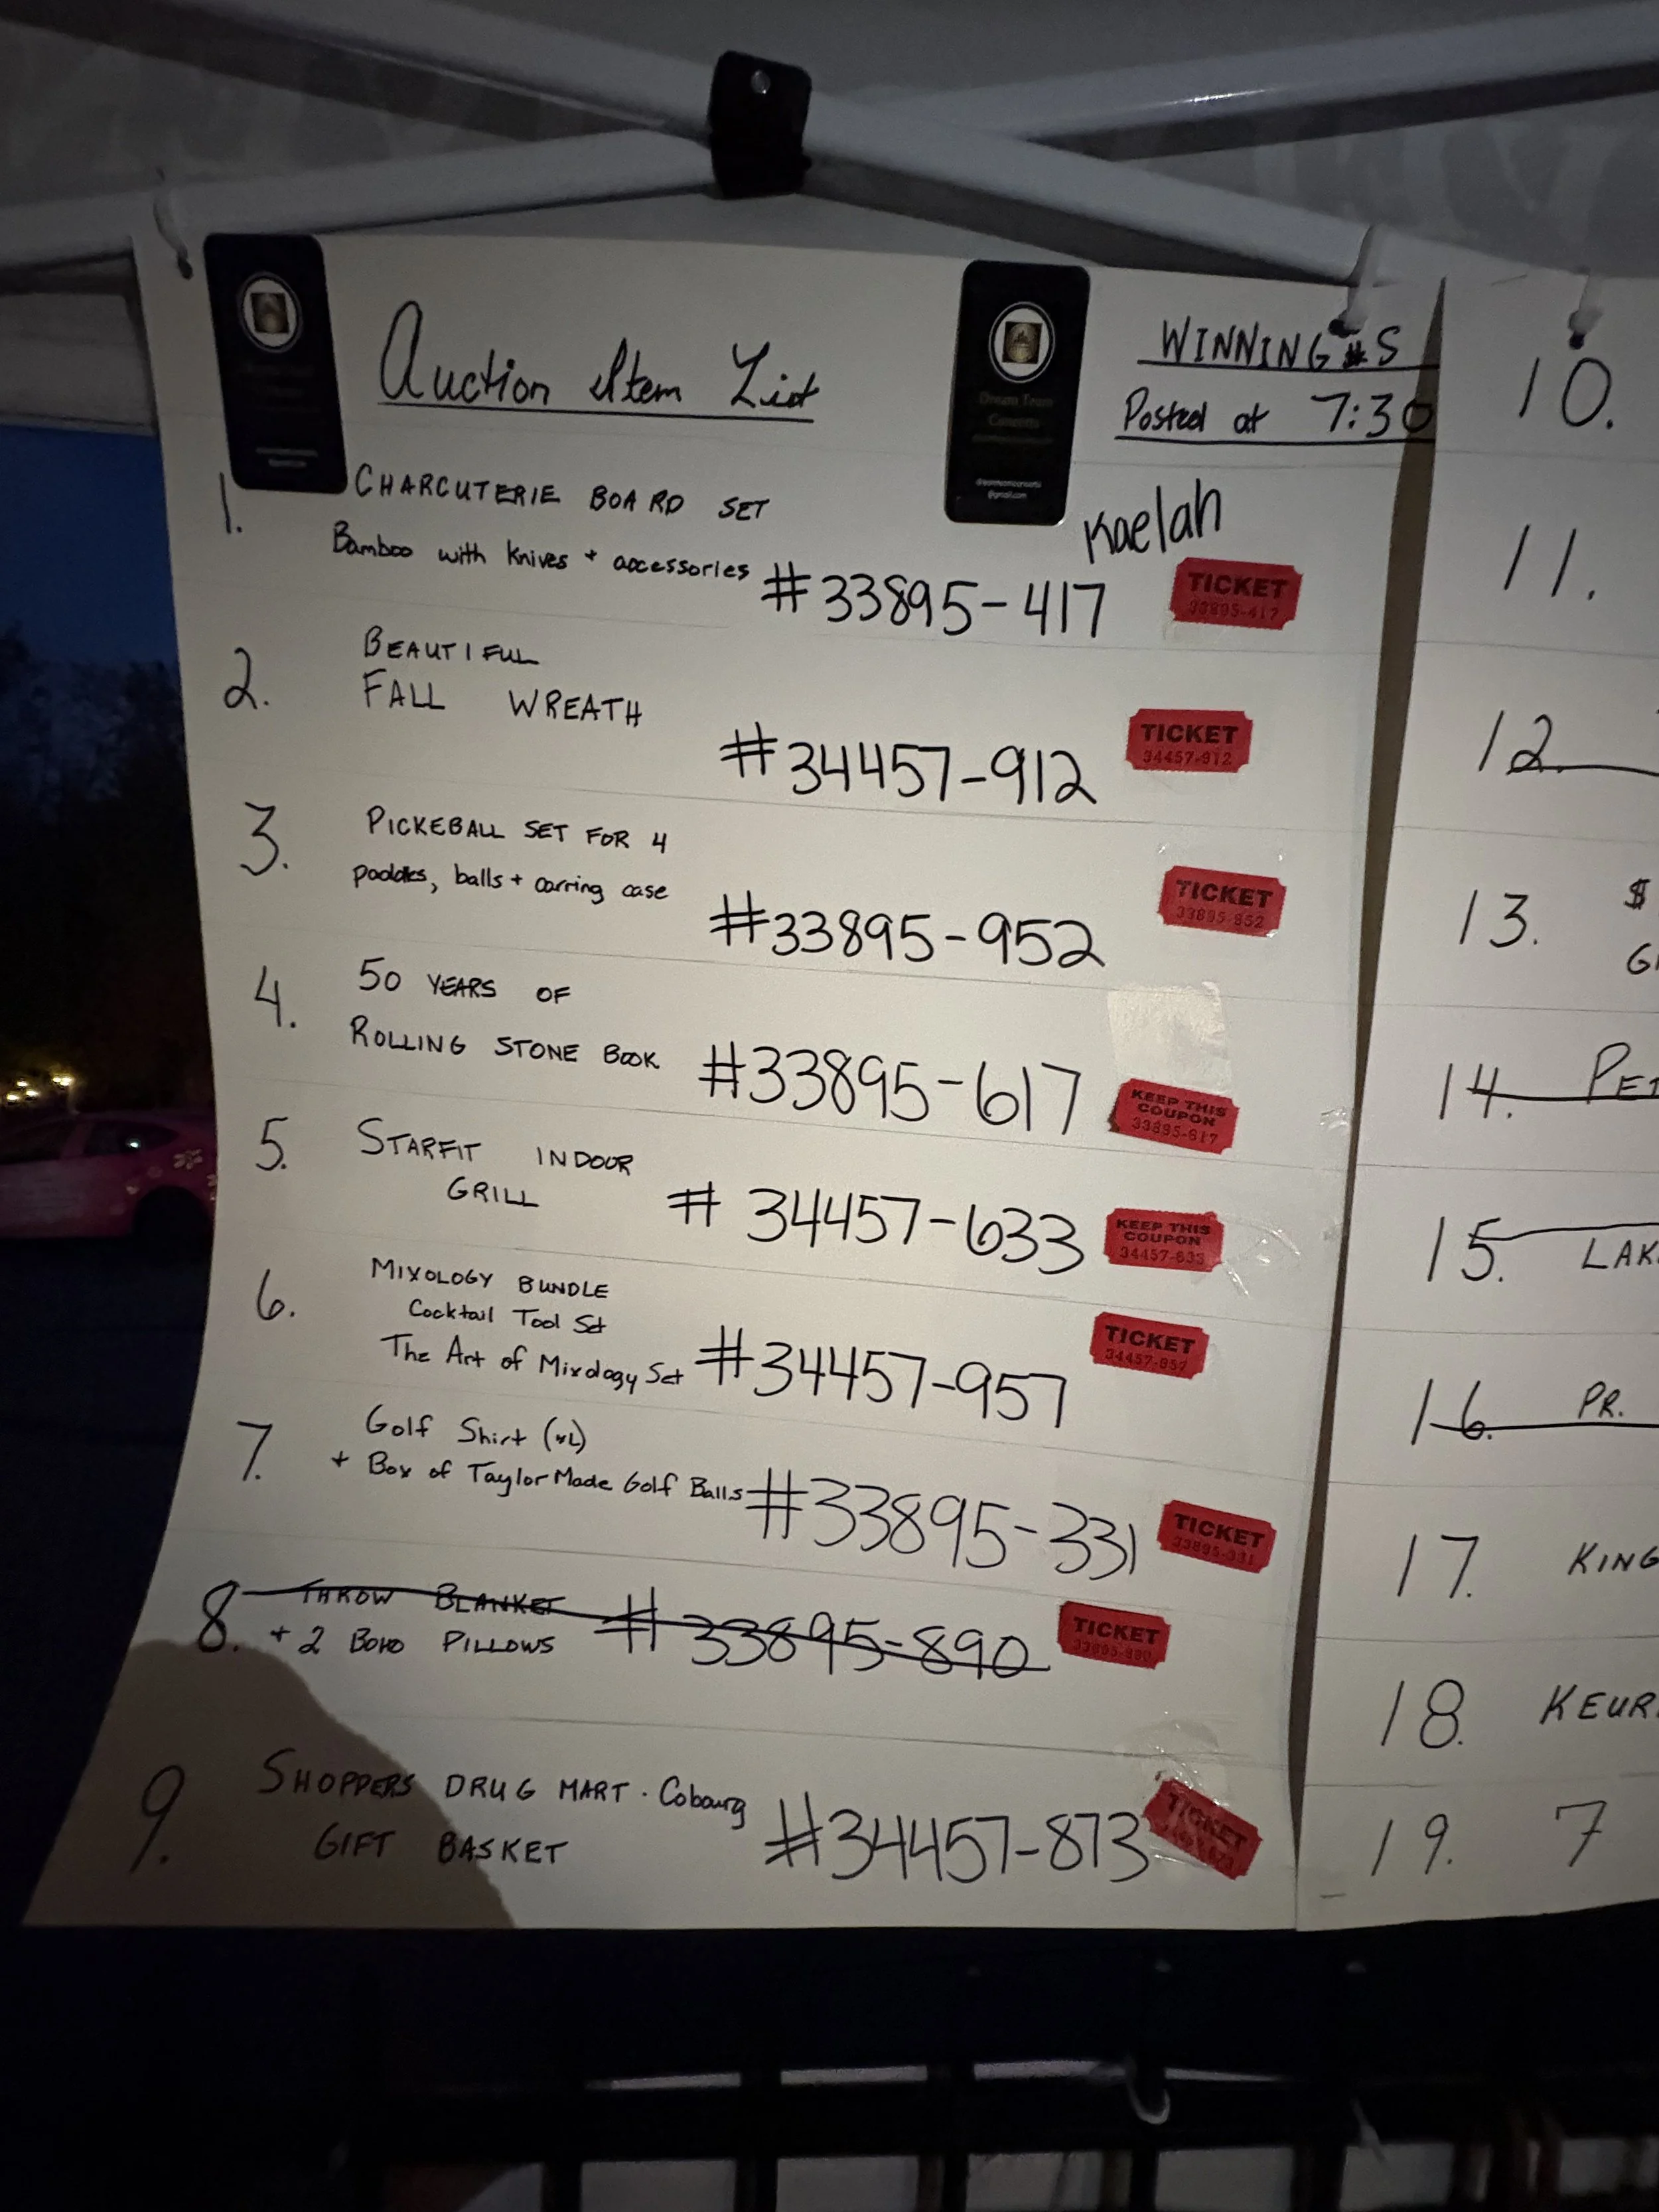 Auction Item List
WINNING #S
Posted at 7:30
Dream Team
Concerts
@gmail.com
1. CHARCUTERIE BOARD SET
Bamboo with Knives + accessories
Kaelah
#33895-417
TICKET
33895-417
2. BEAUTIFUL
FALL WREATH
#34457-912
TICKET
34457-912
3. PICKEBALL SET FOR 4
paddles, balls + carring case
#33895-952
TICKET
33895-952
4. 50 YEARS OF
ROLLING STONE BOOK
#33895-617
KEEP THIS
COUPON
33895-617
5. STARFIT INDOOR
GRILL
# 34457-633
KEEP THIS
COUPON
34457-633
6. MIXOLOGY BUNDLE
Cocktail Tool Set
The Art of Mixology Set
#34457-957
TICKET
34457-957
7. Golf Shirt (XL)
+ Box of TaylorMade Golf Balls
#33895-331
TICKET
33895-331
8. THROW BLANKET
+ 2 BOHO PILLOWS
# 33895-890
TICKET
33895-890
9. SHOPPERS DRUG MART · Cobourg
GIFT BASKET
#34457-873
TICKET
10.
11.
12.
13. $
14.
15.
16. PR.
17.
18.
19. 7